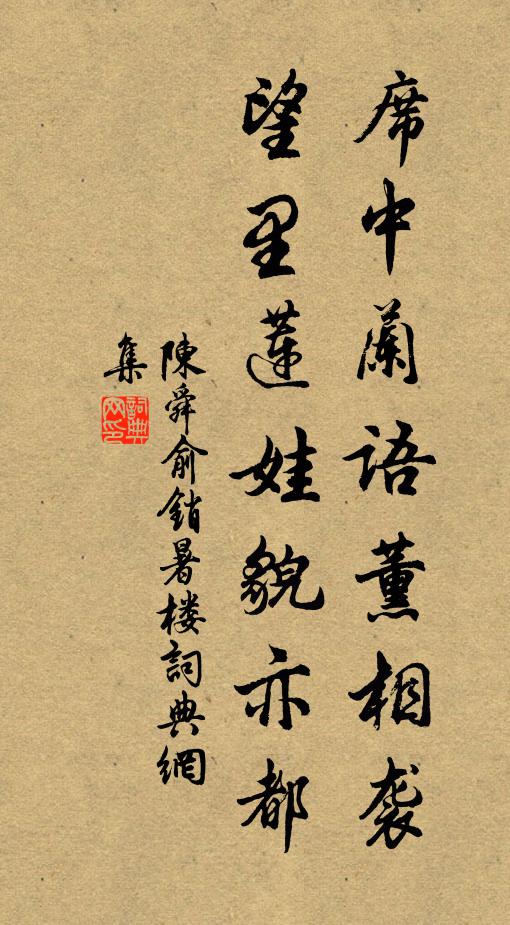 席中蘭語薰相袭
望里蓮娃貌亦都
陳舜俞銷暑楼詞典網
集
詞典
网印